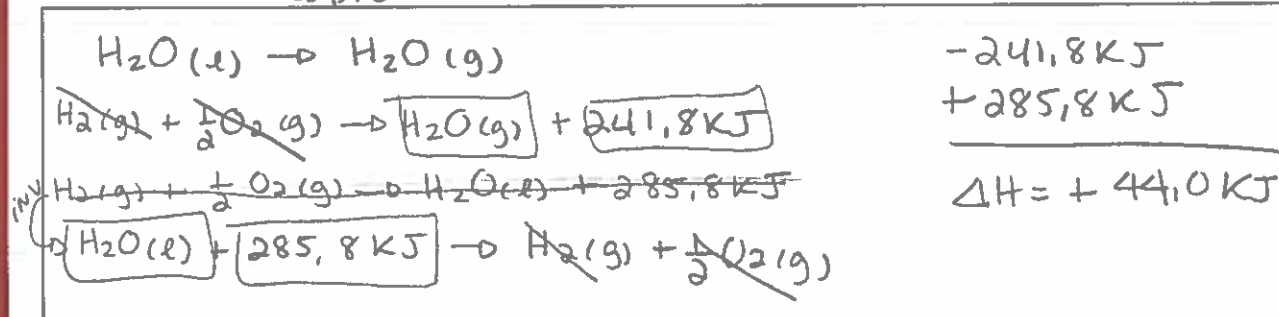 H₂O (l) → H₂O (g)
H₂(g) + 1/2 O₂ (g) → H₂O(g) + 241,8KJ
inv H₂(g) + 1/2 O₂(g) → H₂O(l) + 285,8KJ
H₂O(l) + 285,8 KJ → H₂(g) + 1/2 O₂(g)
-241,8KJ
+285,8KJ
ΔH = + 44,0 KJ